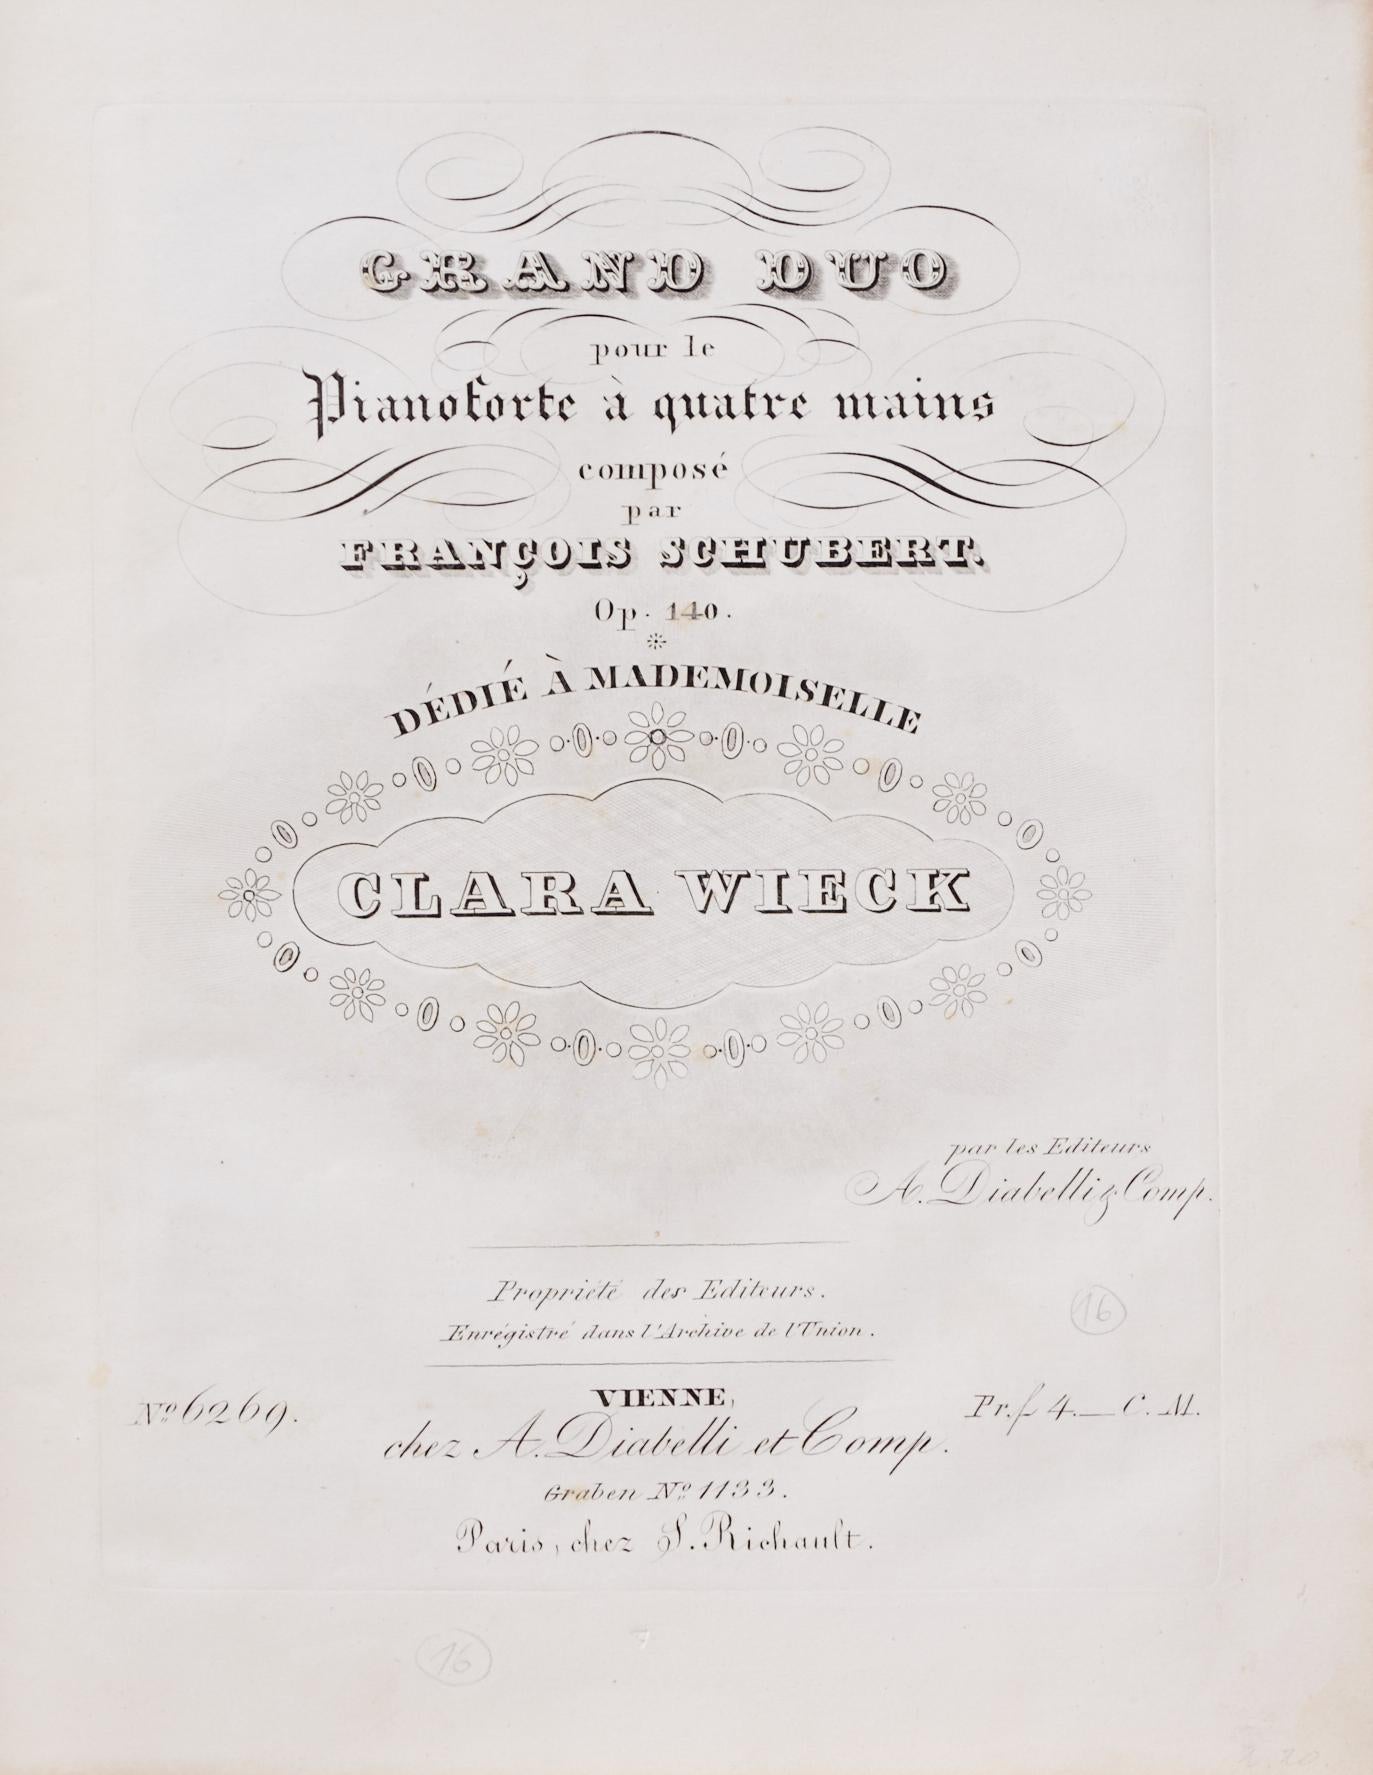 GRAND DUO
pour le
Pianoforte à quatre mains
composé
par
FRANÇOIS SCHUBERT.
Op. 140.
DÉDIÉ À MADEMOISELLE
CLARA WIECK
par les Editeurs
A. Diabelli & Comp.
Propriété des Editeurs.
Enrégistré dans l'Archive de l'Union.
16
No. 6269.
VIENNE,
Pr. f 4.— C. M.
chez A. Diabelli et Comp.
Graben No. 1133.
Paris, chez S. Richault.
16